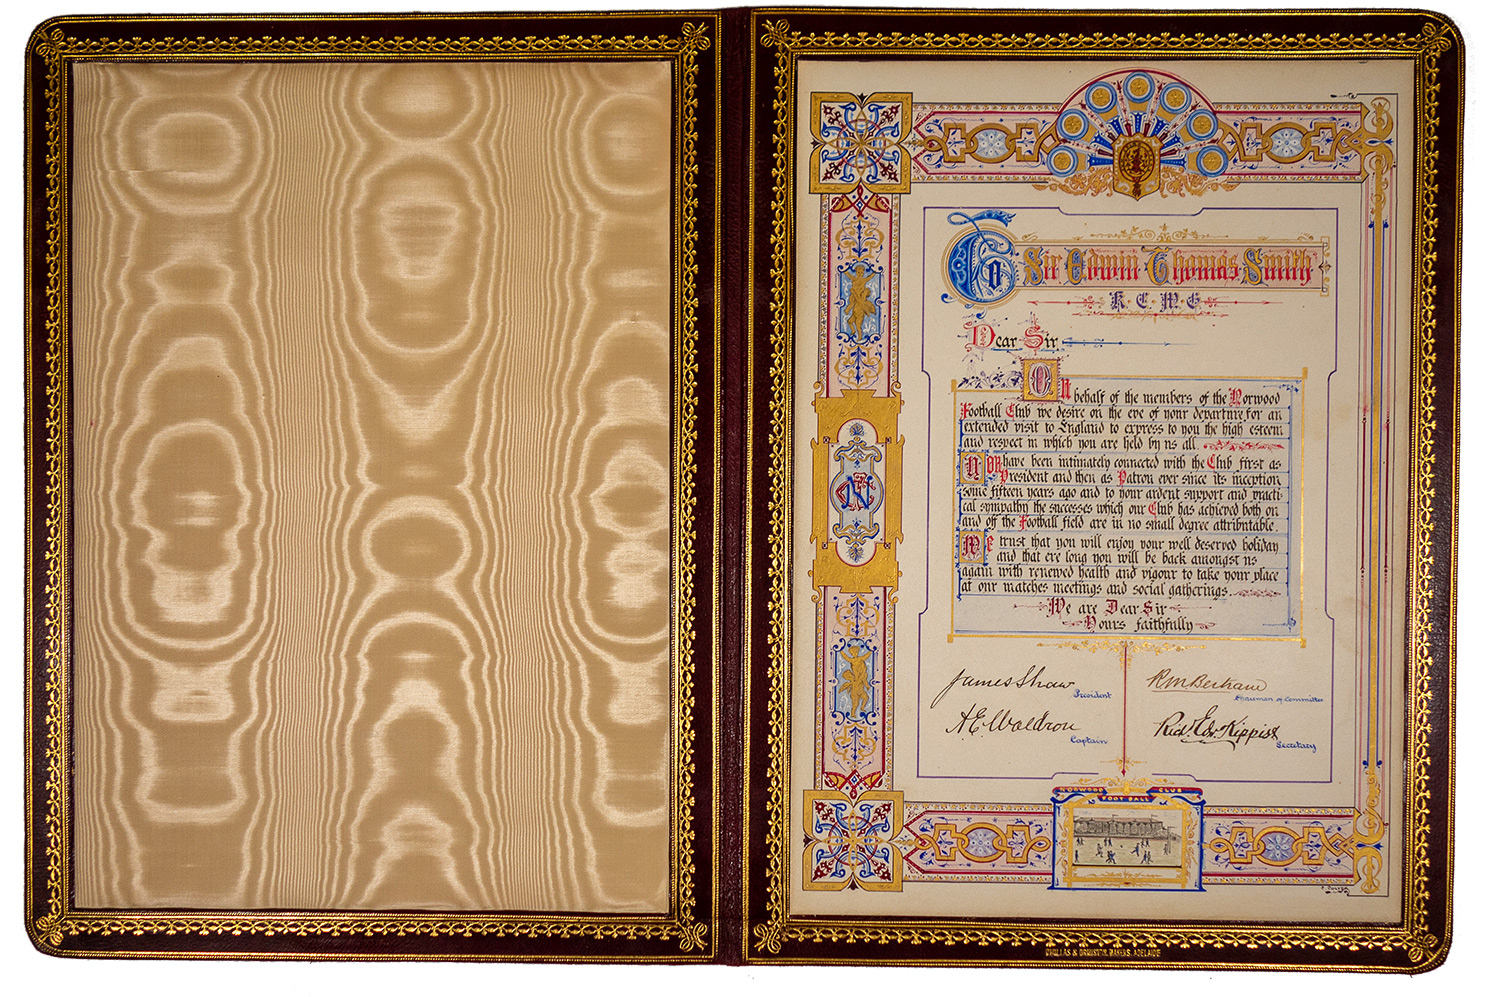 To Sir Edwin Thomas Smith
K. C. M. G.
Dear Sir
On behalf of the members of the Norwood
Football Club we desire on the eve of your departure for an
extended visit to England to express to you the high esteem
and respect in which you are held by us all
You have been intimately connected with the Club first as
President and then as Patron ever since its inception
some fifteen years ago and to your ardent support and practi-
cal sympathy the successes which our Club has achieved both on
and off the Football field are in no small degree attributable.
We trust that you will enjoy your well deserved holiday
and that ere long you will be back amongst us
again with renewed health and vigour to take your place
at our matches meetings and social gatherings.
We are Dear Sir
Yours faithfully
James Shaw
President
R M Bertram
Chairman of Committee
A E Waldron
Captain
Richd. Edw. Kippist
Secretary
NORWOOD CLUB
FOOT BALL
N
MAKERS. ADELAIDE